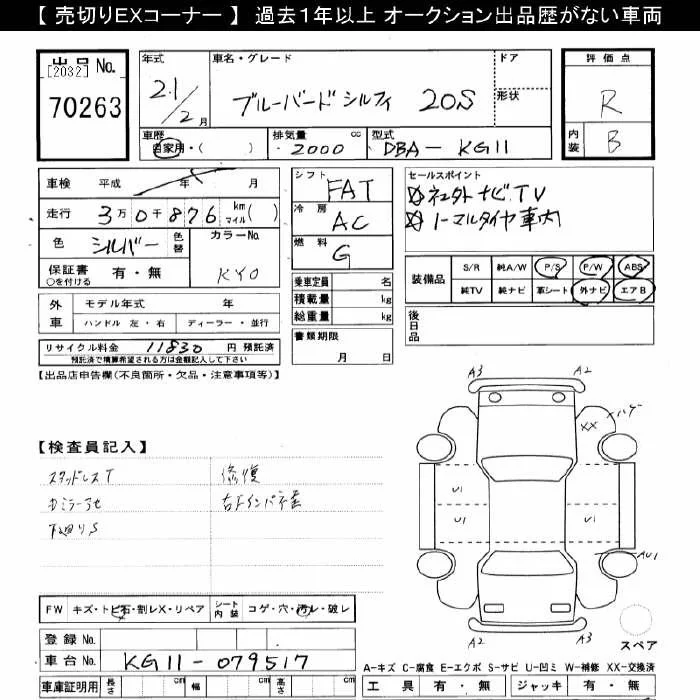 【 売切りEXコーナー 】 過去１年以上 オークション出品歴がない車両
出品 No.
[2032]
70263
年式
21/2月
車名・グレード
ブルーバードシルフィ 20S
ドア
形状
評価点
R
内装
B
車歴
自家用・( )
排気量 cc
2000
型式
DBA－KG11
車検 平成 年 月
走行 3万0千876 km マイル( )
色 シルバー 色替
カラーNo.
KY0
保証書 有・無
○を付ける
外車
モデル年式 年
ハンドル 左・右 ディーラー・並行
リサイクル料金 11830 円 預託済
預託済で精算希望される方は金額記入して下さい
シフト FAT
冷房 AC
燃料 G
乗車定員 名
積載量 kg
総重量 kg
書類期限
月 日
セールスポイント
ネエ外ナビTV
ノーマルタイヤ車内
装備品
S/R 純A/W P/S P/W ABS
純TV 純ナビ 革シート 外ナビ エアB
後日品
【出品店申告欄(不良箇所・欠品・注意事項等)】
【検査員記入】
スタッドレスT 修復
下廻りS
A3 A2
ハゲ
XX
U1
U1 U1
AU1
A2 A3
スペア
FW キズ・トビ石・割レX・リペア
シート内装 コゲ・穴・汚レ・破レ
登録 No.
車台 No. KG11－079517
車庫証明用 長さ cm 幅 cm 高さ cm
A－キズ C－腐食 E－エクボ S－サビ U－凹ミ W－補修 XX－交換済
工具 有・無 ジャッキ 有・無